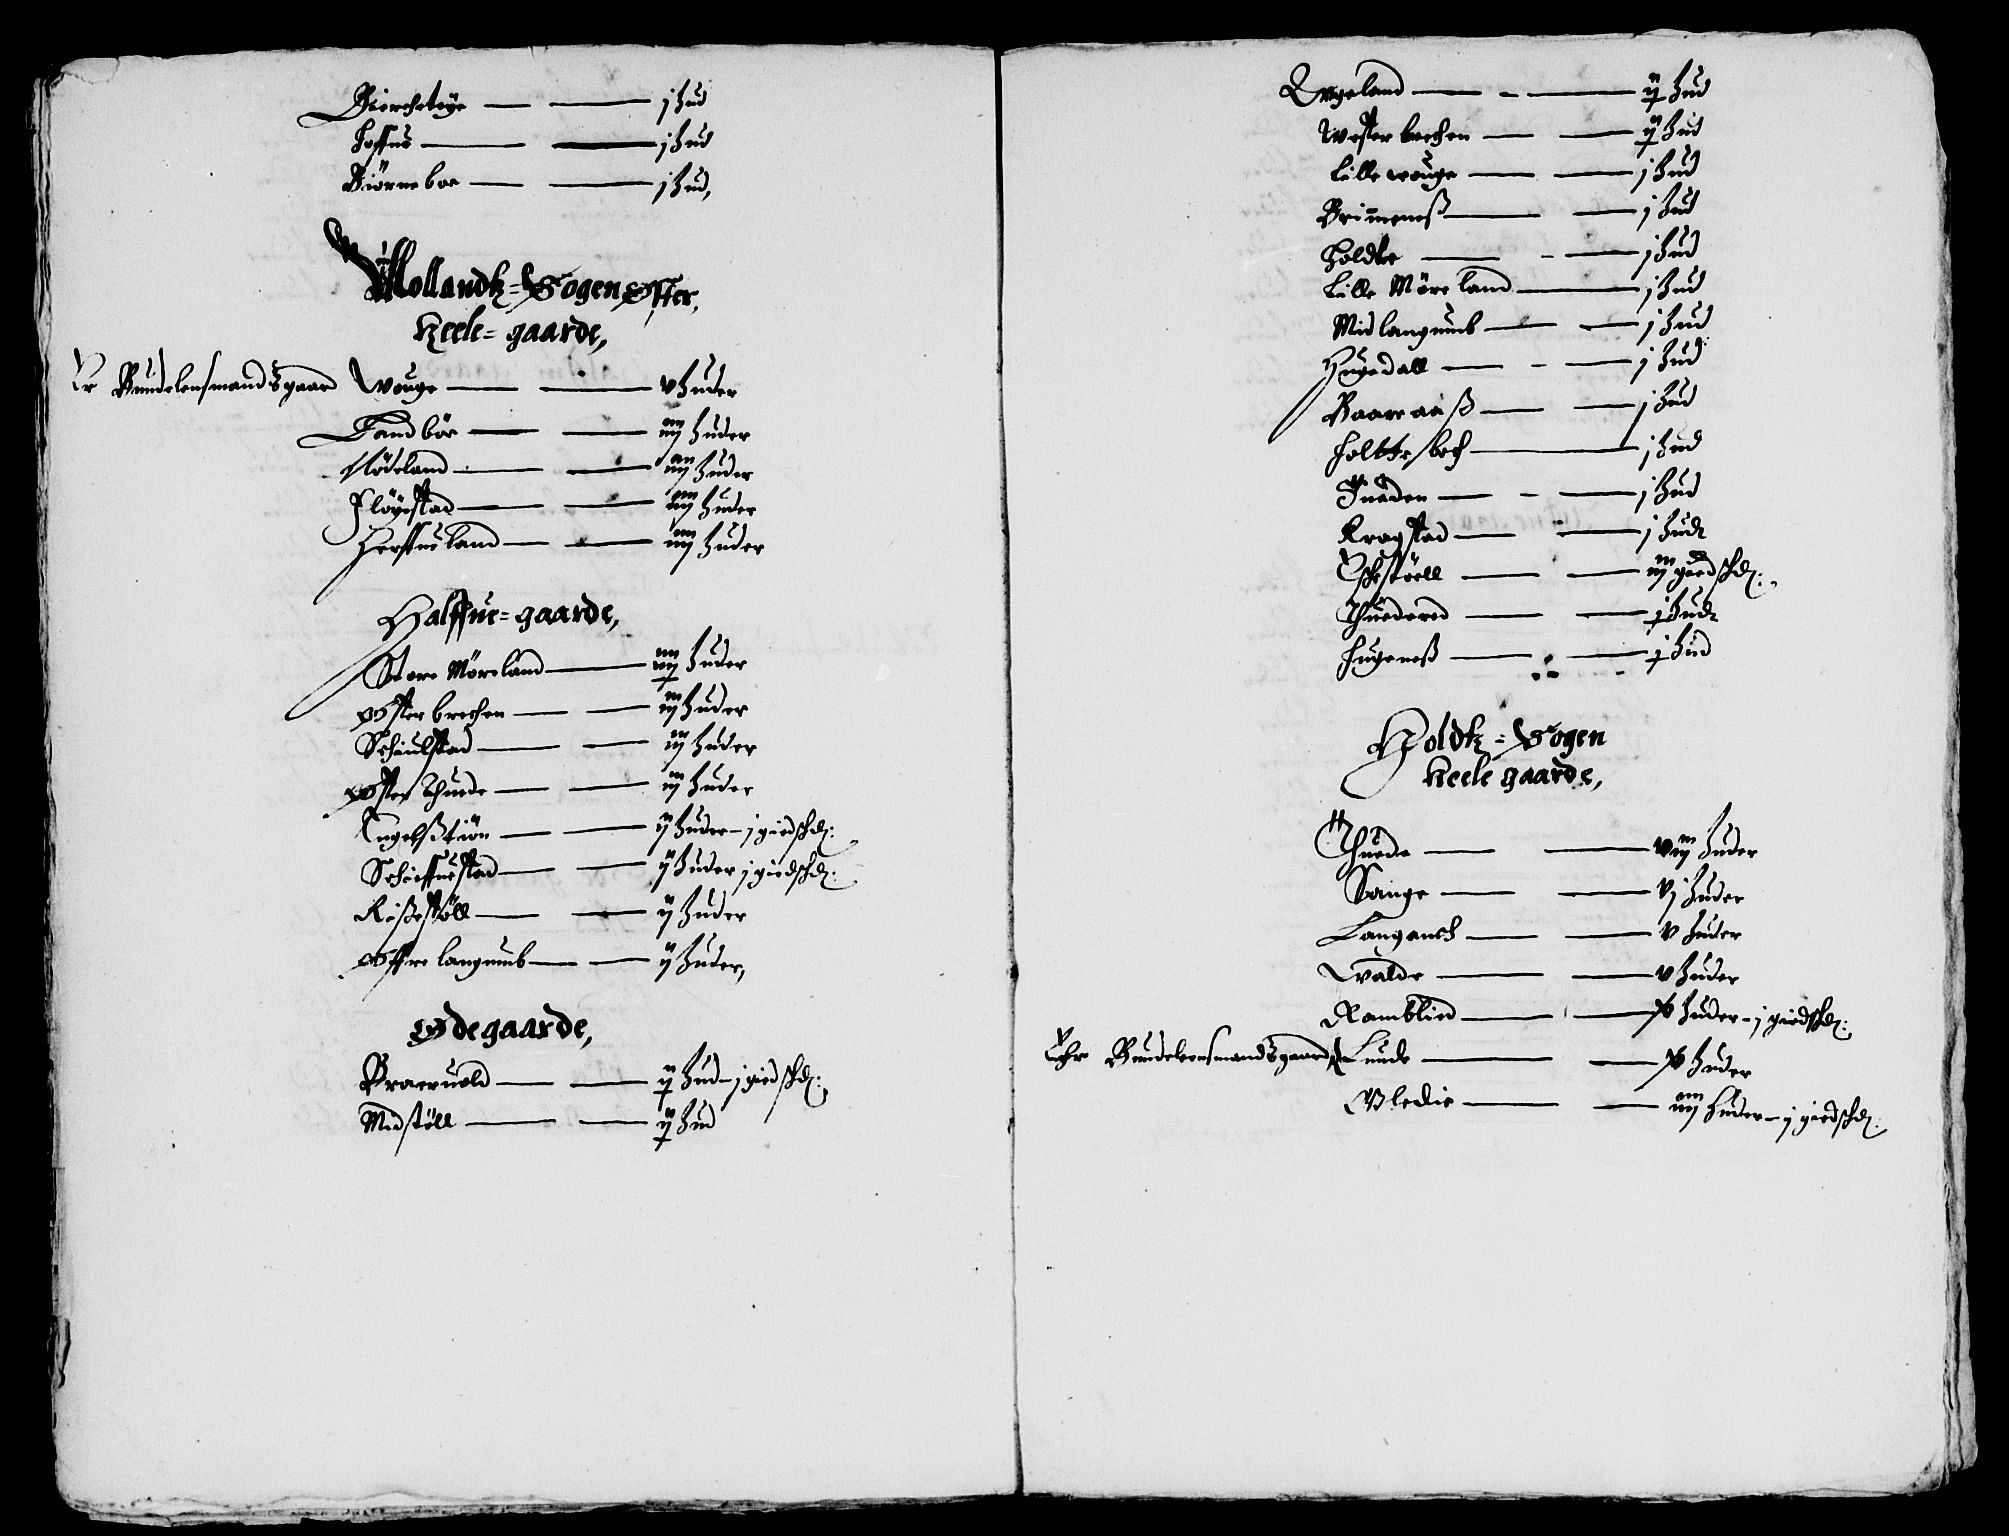 Bierchetøye — — j hud
Hoffue — — j hud
Biørneboe — — j hud,
Mollandtz=Sogen
Heele=gaarde,
Er Bundelensmandtzgaard Wouge — — v huder
Landbøe — — iiij huder
Flødeland — — iiij huder
Fløyestad — — iiij huder
Herffueland — — iiij huder
Halffue=gaarde,
Store Møreland — — huder
Øster brechen — — iij huder
Schiulstad — — iij huder
Øster thuede — — iij huder
Engelsztiøn — — ij huder – j giedsch:
Scheffuestad — — ij huder j giedsch:
Riszestøll — — ij huder
Øffre langumb — — ij huder,
Ødegaarde,
Braeruold — — ij hud – j giedsch:
Midstøll — — ij hud
Ougeland — — ij hud
Wester brechen — — ij hud
Lille wouge — — j hud
Brimenesz — — j hud
Holdte — — j hud
Lille Møreland — j hud
Midlangumb — — j hud
Hugedall — — j hud
Baareaasz — — j hud
Holtte bech — j hud
Fueden — — j hud
Kragstad — — j hud
Eschestøell — — iij giedsch:
Thuedered — — j hud
Hugenesz — — j hud
Holdtz=Sogen
Heele gaarde,
Thuede — — viij huder
Sange — — vj huder
Langanch — — v huder
Walde — — v huder
Ramblied — — huder – j giedsch:
Ehr Bundeleensmandtzgaard Lunde — — huder
Bledie — — iiij huder – j giedsch: